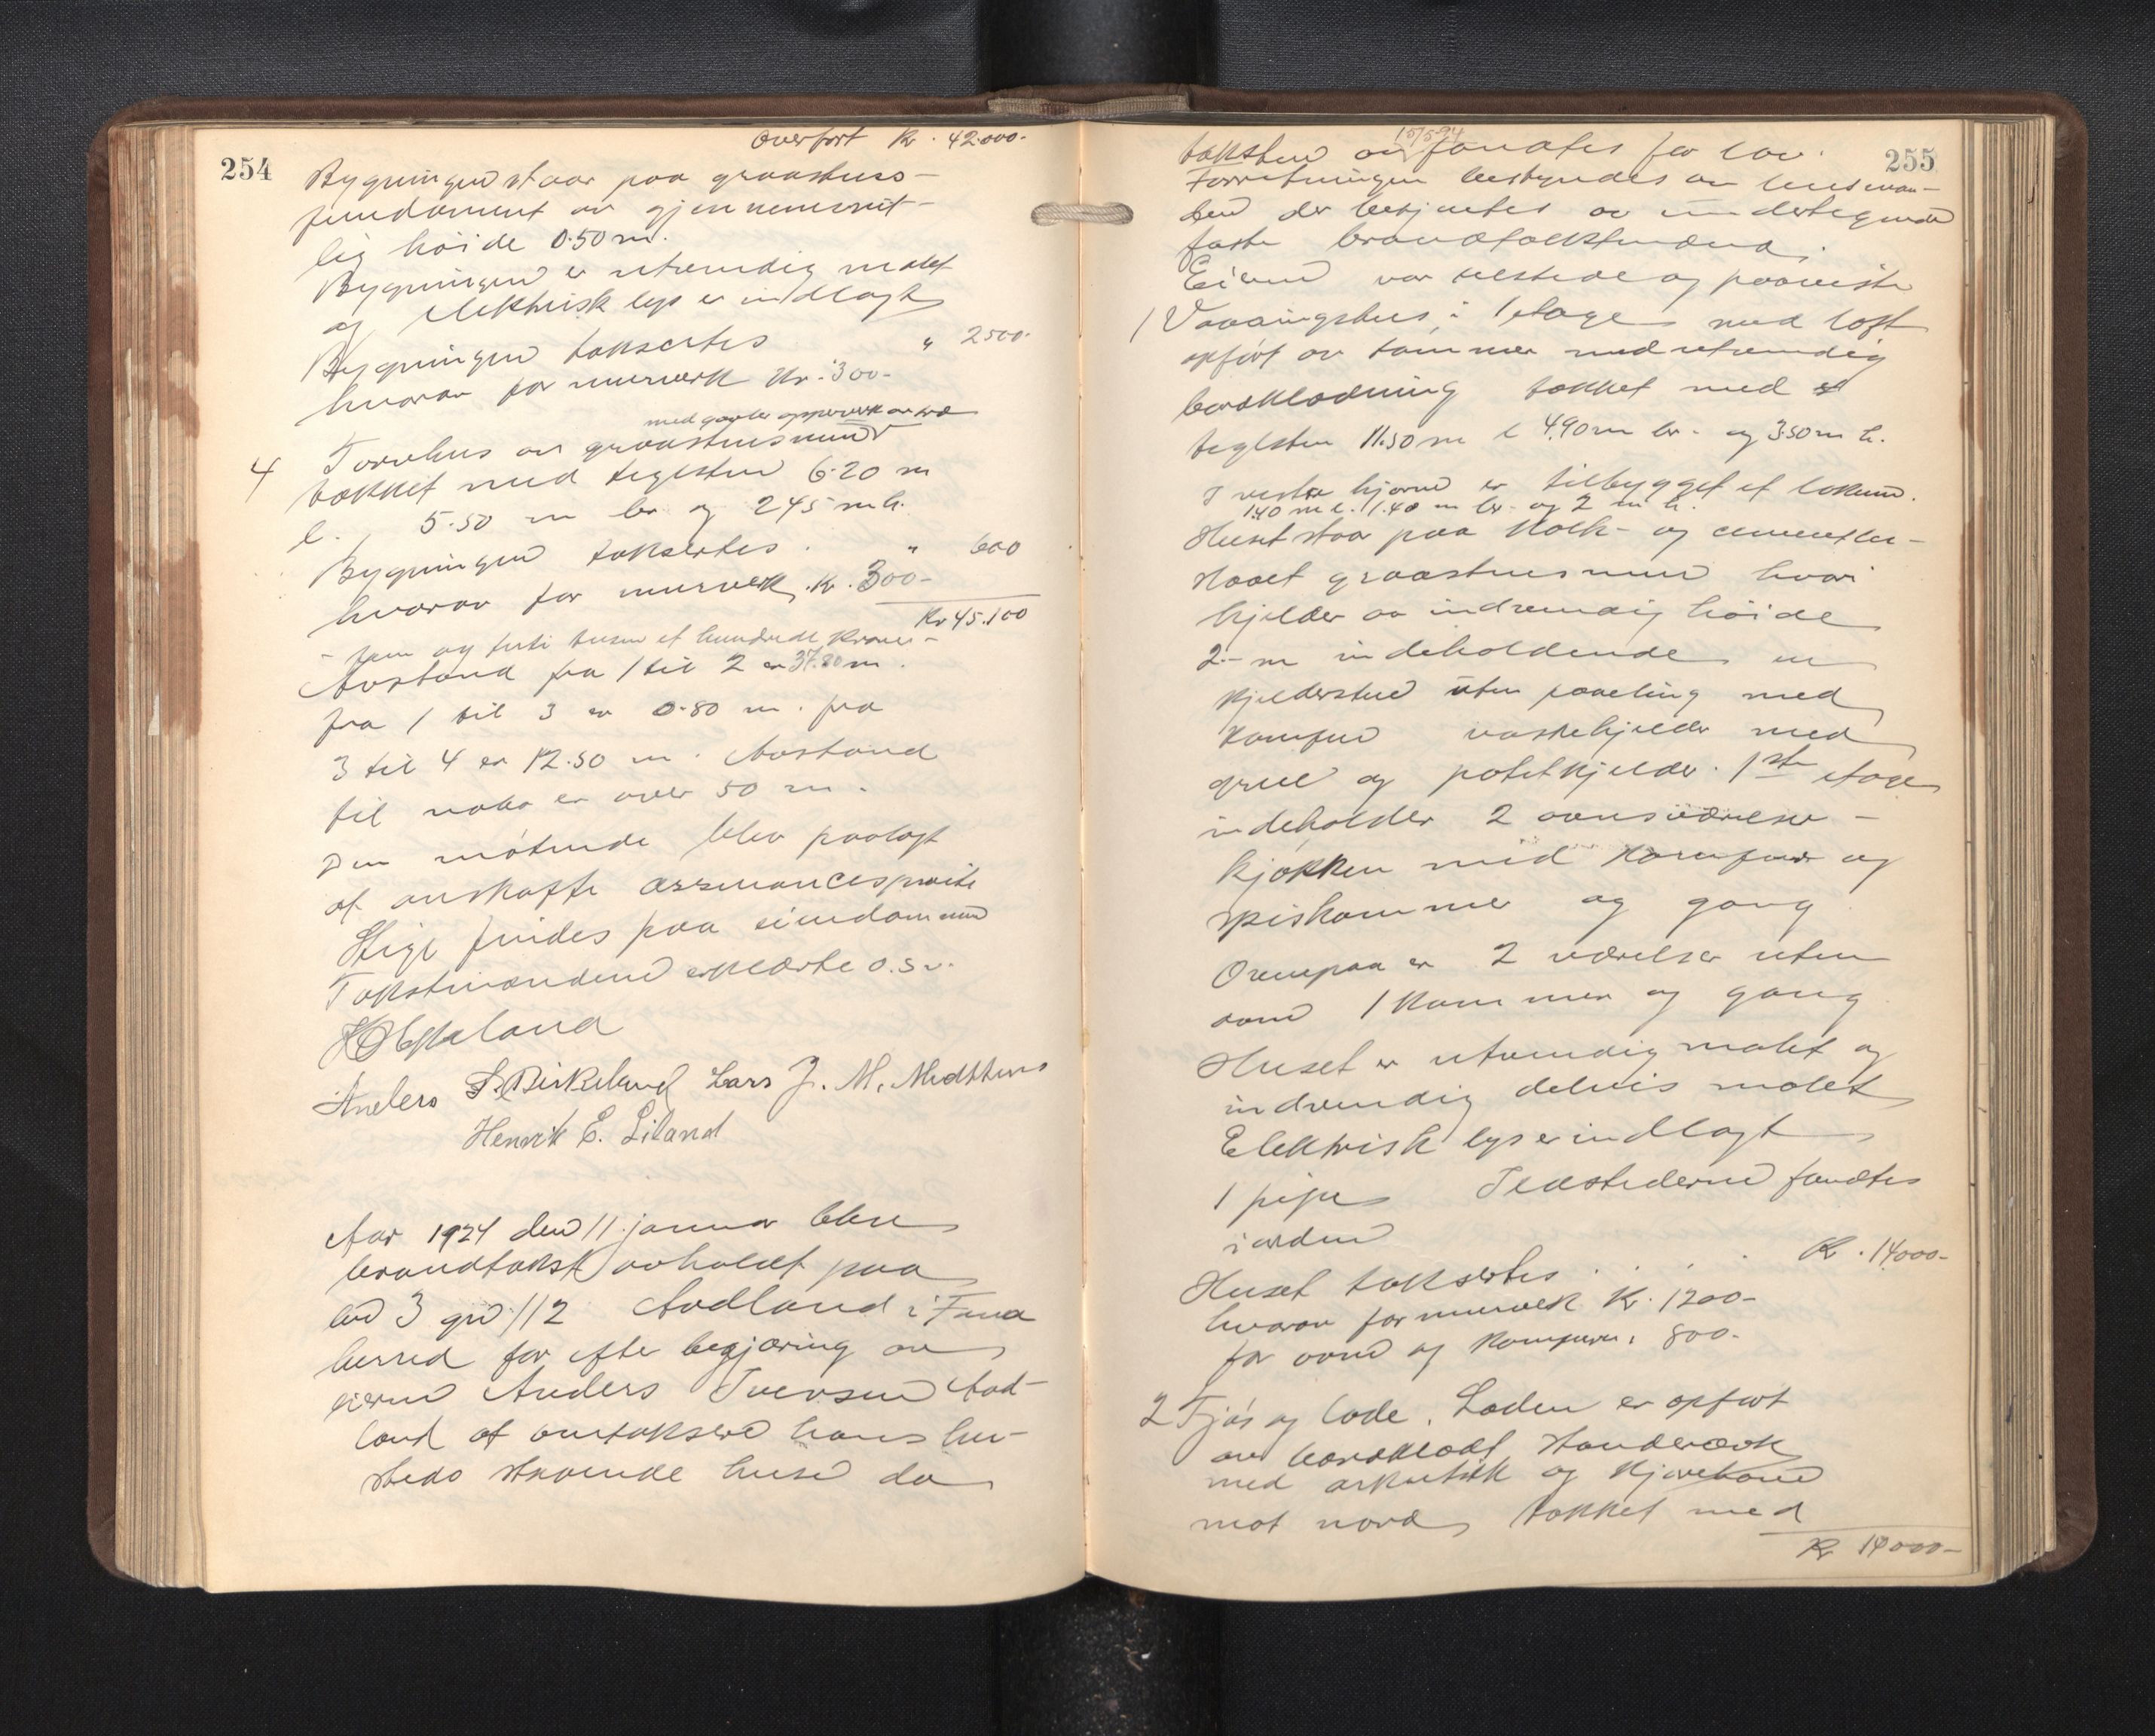 254
Overført Kr. 42.000.-
Bygningen staar paa graastens-
fundament av gjennemsnit-
lig høide 0.50 m.
Bygningen er utvendig malet
og elektrisk lys er indlagt
Bygningen taksertes " 2500.-
hvorav for murverk Kr. 300.-
med gavler oppverk av træ
4 Torvhus av graastensmur
tækket med teglsten 6.20 m
l. 5.50 m br og 245 m h.
Bygningen taksertes . " 600
hvorav for murverk . Kr. 300-
Kr 45.100
- fem og førti tusen et hundrede kroner -
Avstand fra 1 til 2 er 37.80 m.
fra 1 til 3 er 0.80 m. fra
3 til 4 er 12.50 m. Avstand
til nabo er over 50 m.
Den møtende blev paalagt
at anskaffe assurancesprøite
Stige findes paa eiendommen
Takstmændene erklærte o.s.v.
Anders S. Birkeland Lars J. M. Midttun
Henrik E. Liland
Aar 1924 den 11 januar blev
brandtakst avholdt paa
3 112 Aadland i Fana
herred for efter begjæring av
eieren Anders Iversen Aad-
land at omtaksere hans her-
steds staaende huse da
255
15/5-94
taksten av fandtes for lav.
Forretningen bestyredes av lensman-
den der betjentes av undertegnede
faste brandtakstmænd.
Eieren var tilstede og paaviste
1 Vaaningshus i 1 etage med loft
opført av tømmer med utvendig
bordklædning tækket med
teglsten 11.50 m l 4.90 m br. og 3.50 m h.
I vestre hjørne er tilbygget et lokum.
1.40 m l. 1.40 m br. og 2 m h.
Huset staar paa kalk- og cementbe-
slaaet graastensmur hvori
kjelder av indvendig høide
2.- m indeholdende en
kjelderstue uten paneling med
komfur vaskekjelder med
grue og potetkjelder. 1ste etage
indeholder 2 ovnsværelser -
kjøkken med komfur og
spiskammer og gang
Ovenpaa er 2 værelser uten
ovne 1 kammer og gang
Huset er utvendig malet og
indvendig delvis malet
Elektrisk lys er indlagt
1 pipe Ildstederne fandtes
i orden
Huset taksertes . . . Kr. 14000-
hvorav for murverk Kr. 1200-
for ovne og komfurer " 800.-
2 Fjøs og lade. Laden er opført
av bordklædt standerverk
med arkutstikk og kjørebane
mot nord, tækket med
Kr 14000-